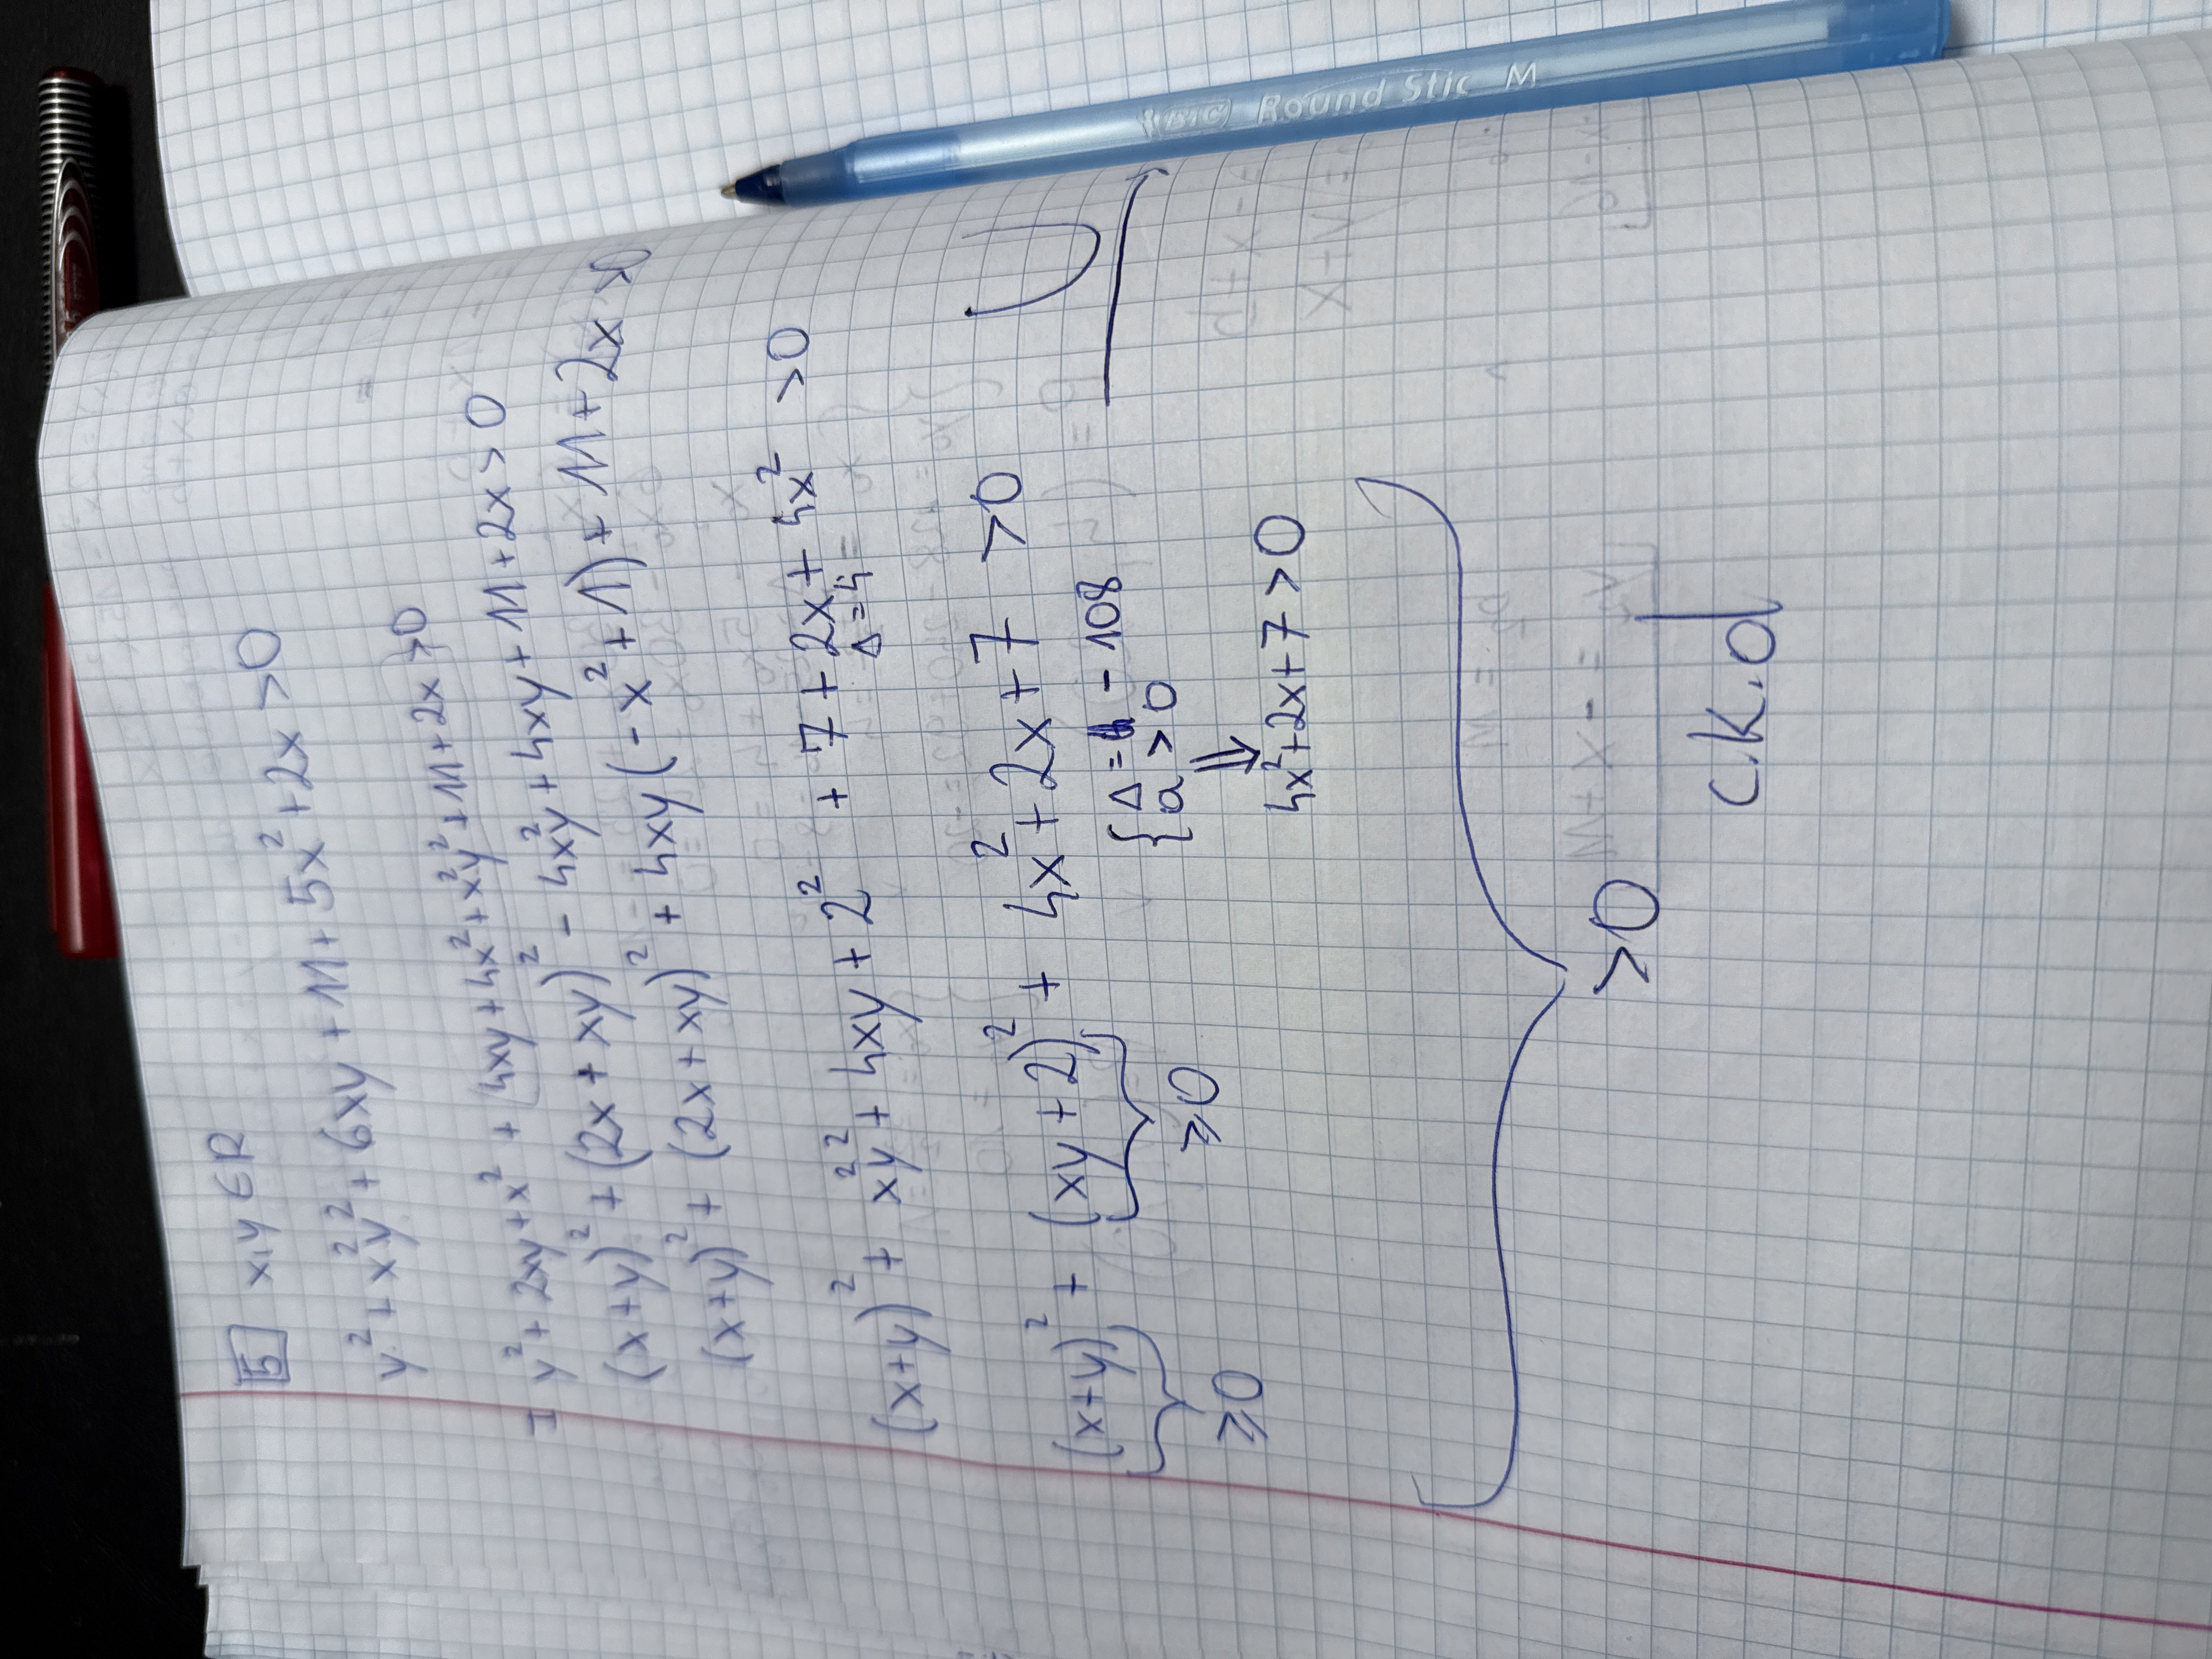 5 x,y ∈ R
y² + x²y² + 6xy + 11 + 5x² + 2x > 0
I y² + 2xy + x² + 4xy + 4x² + x²y² + 11 + 2x > 0
(x+y)² + (2x + xy)² - 4x²y + 4xy + 11 + 2x > 0
(x+y)² + (2x + xy)² + 4xy(-x² + 1) + 11 + 2x > 0
(x+y)² + x²y² + 4xy + 2² + 7 + 2x + 4x² > 0
Δ = 4 =
(x+y)² + (xy + 2)² + 4x² + 2x + 7 > 0
≥ 0
≥ 0
{ Δ = - 108
a > 0
⇓
4x² + 2x + 7 > 0
> 0
c.k.d
BIC Round Stic M